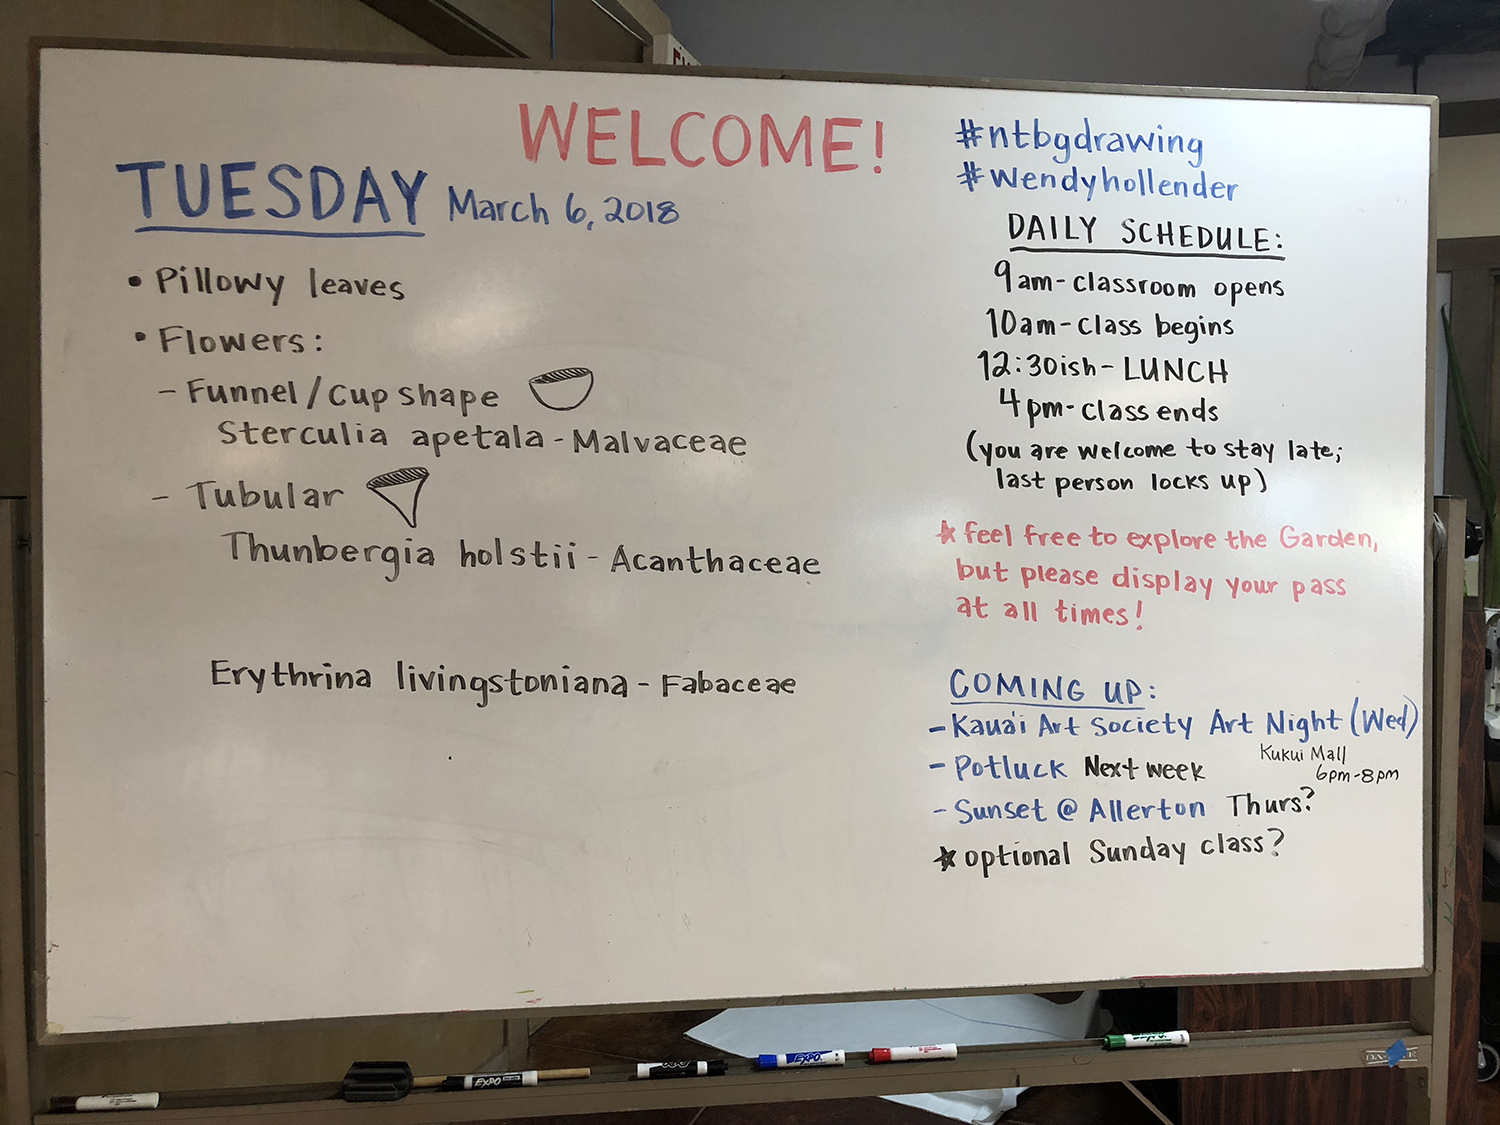 WELCOME!
TUESDAY March 6, 2018
• Pillowy leaves
• Flowers:
- Funnel/Cup shape
Sterculia apetala - Malvaceae
- Tubular
Thunbergia holstii - Acanthaceae
Erythrina livingstoniana - Fabaceae
#ntbgdrawing
#wendyhollender
DAILY SCHEDULE:
9am - classroom opens
10am - class begins
12:30ish - LUNCH
4pm - class ends
(you are welcome to stay late;
last person locks up)
★ feel free to explore the Garden,
but please display your pass
at all times!
COMING UP:
- Kaua'i Art Society Art Night (Wed)
Kukui Mall
6pm-8pm
- Potluck Next week
- Sunset @ Allerton Thurs?
★ optional Sunday class?
EXPO
EXPO